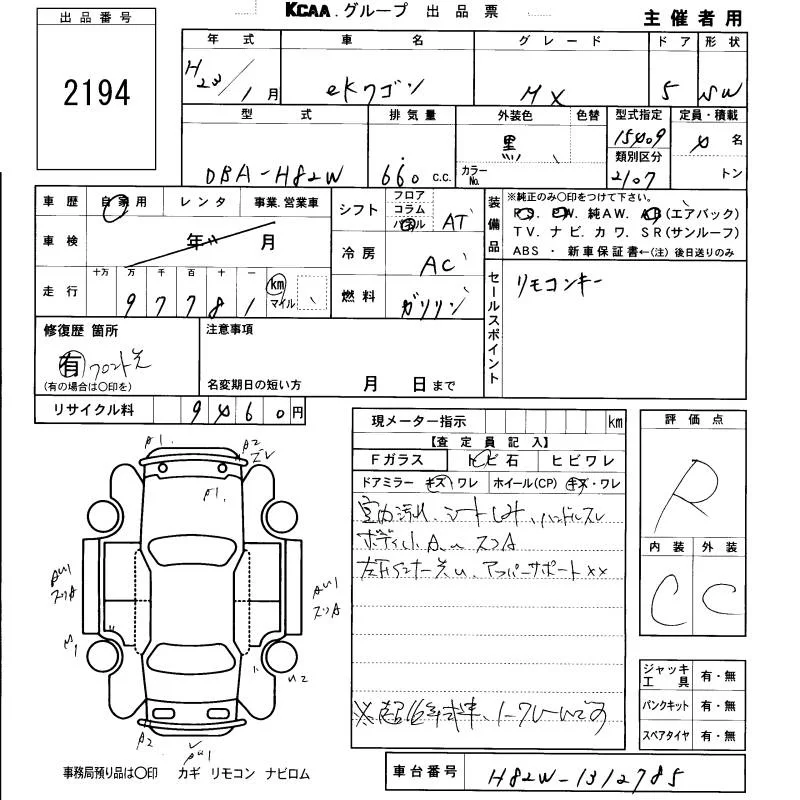 KCAA.グループ 出品票
主催者用
出品番号
2194
年式 車名 グレード ドア 形状
H23/1月 eKワゴン MX 5 SW
型式 排気量 外装色 色替 型式指定 定員・積載
DBA-H82W 660 c.c. 黒 カラーNo. 15409 4名
類別区分
2107 トン
車歴 自家用 レンタ 事業.営業車
車検 年 月
走行 十万 万 千 百 十 一
97781 km マイル
シフト フロア コラム パネル AT
冷房 AC
燃料 ガソリン
装備品
※純正のみ〇印をつけて下さい。
PS. PW. 純AW. AB(エアバック)
TV. ナビ. カワ. SR(サンルーフ)
ABS ・ 新車保証書←(注)後日送りのみ
セールスポイント
リモコンキー
修復歴 箇所
有 フロント
(有の場合は〇印を)
注意事項
名変期日の短い方 月 日まで
リサイクル料 9460円
現メーター指示 km
【査定員記入】
Fガラス トビ石 ヒビワレ
ドアミラー キズ ワレ ホイール(CP) キズ・ワレ
室内汚れ、シートシミ、ハンドルスレ
ボディ小A.U スリA
アッパーサポート××
評価点
R
内装 外装
C C
A1. A2
A1.
AU1
スリA
AU1
スリA
U2
A2
ジャッキ工具 有・無
パンクキット 有・無
スペアタイヤ 有・無
事務局預り品は〇印 カギ リモコン ナビロム
車台番号 H82W-1312785